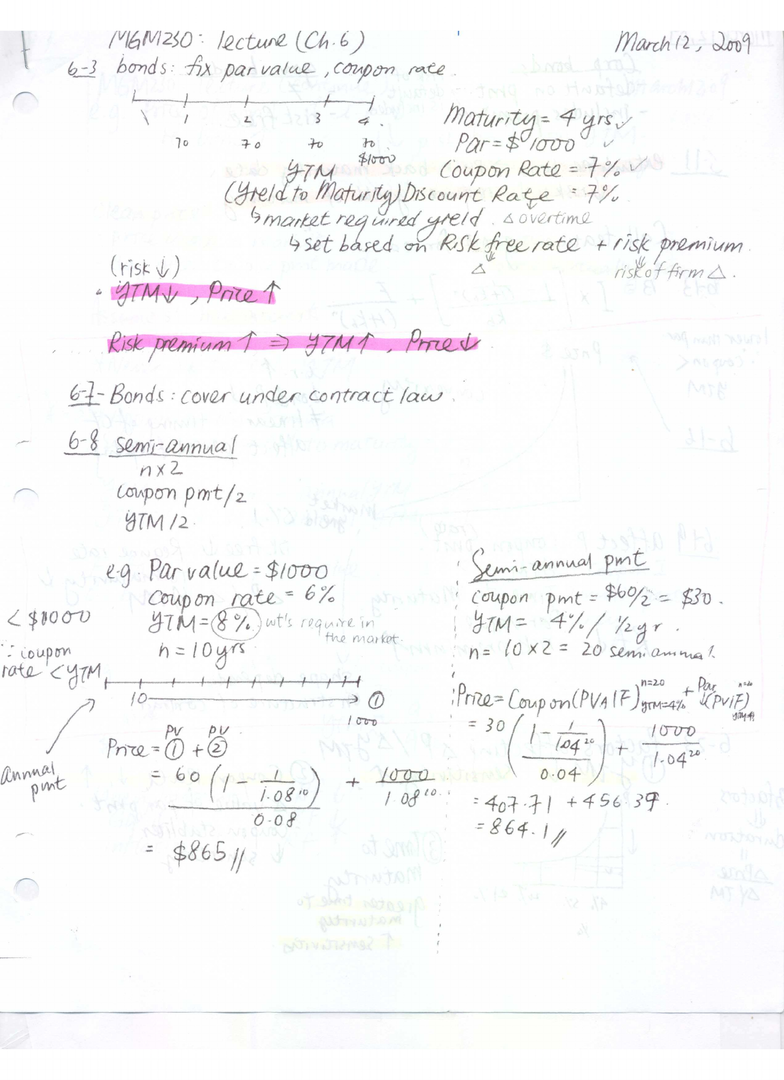 MGM230: lecture (Ch.6) March 12, 2009
6-3 bonds: fix par value, coupon rate.
1 2 3 4
70 70 70 70
$1000
Maturity = 4 yrs ✓
Par = $1000 ✓
YTM Coupon Rate = 7% ✓
(Yield to Maturity) Discount Rate = 7%
↳ market required yield. △ overtime
↳ set based on Risk free rate + risk premium.
△ risk of firm △.
(risk ↓)
• YTM ↓, Price ↑
Risk premium ↑ ⇒ YTM ↑, Price ↓
6-7 - Bonds: cover under contract law.
6-8 semi-annual
n x 2
coupon pmt/2
YTM/2.
e.g. Par value = $1000
coupon rate = 6%
YTM = 8% wt's require in the market.
n = 10 yrs.
< $1000
∵ coupon
rate < YTM
10 → ①
1000
annual
pmt
PV PV
Price = ① + ②
= 60 (1 - 1/1.08¹⁰) / 0.08 + 1000/1.08¹⁰.
= $865 //
Semi-annual pmt
coupon pmt = $60/2 = $30.
YTM = 4% / ½ yr.
n = 10 x 2 = 20 semi annual.
Price = Coupon (PVAIF) n=20 YTM=4% + Par (PVIF) n=20
= 30 (1 - 1/1.04²⁰ / 0.04) + 1000/1.04²⁰
= 407.71 + 456.39.
= 864.1 //